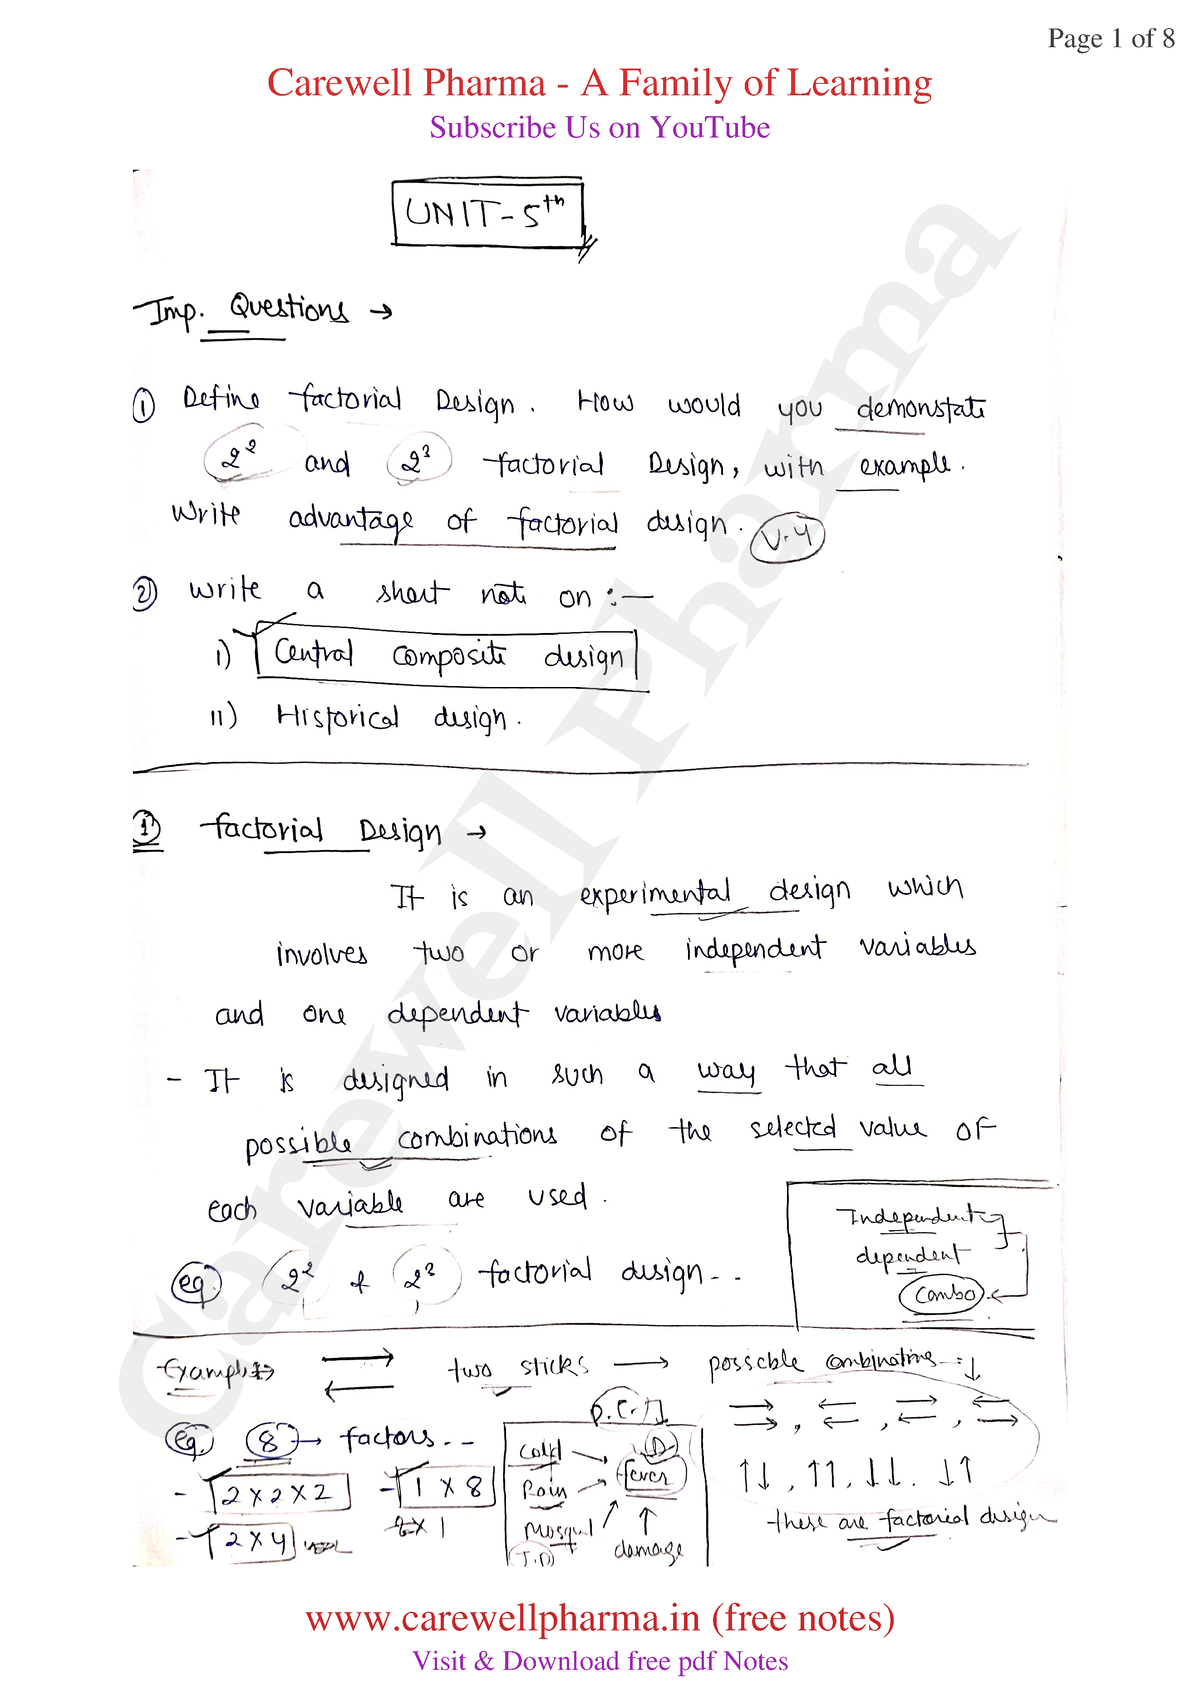 Page 1 of 8
Carewell Pharma - A Family of Learning
Subscribe Us on YouTube
UNIT-5th
Imp. Questions →
① Define factorial Design. How would you demonstate
2² and 2³ factorial Design, with example.
Write advantage of factorial design.
② write a short note on :—
i) Central composite design
ii) Historical design.
① factorial Design →
It is an experimental design which
involves two or more independent variables
and one dependent variables
- It is designed in such a way that all
possible combinations of the selected value of
each variable are used.
Independent
dependent
Combo
eg. 2² & 2³ factorial design..
Examples → two sticks → possible combinations :↓
→→, ←←, →←, ←→
eg. 8 → factors...
- 2×2×2 - 1×8
- 2×4
Cold
Rain
fever
damage
↑↓, ↑↑, ↓↓, ↓↑
these are factorial design
www.carewellpharma.in (free notes)
Visit & Download free pdf Notes
Carewell Pharma